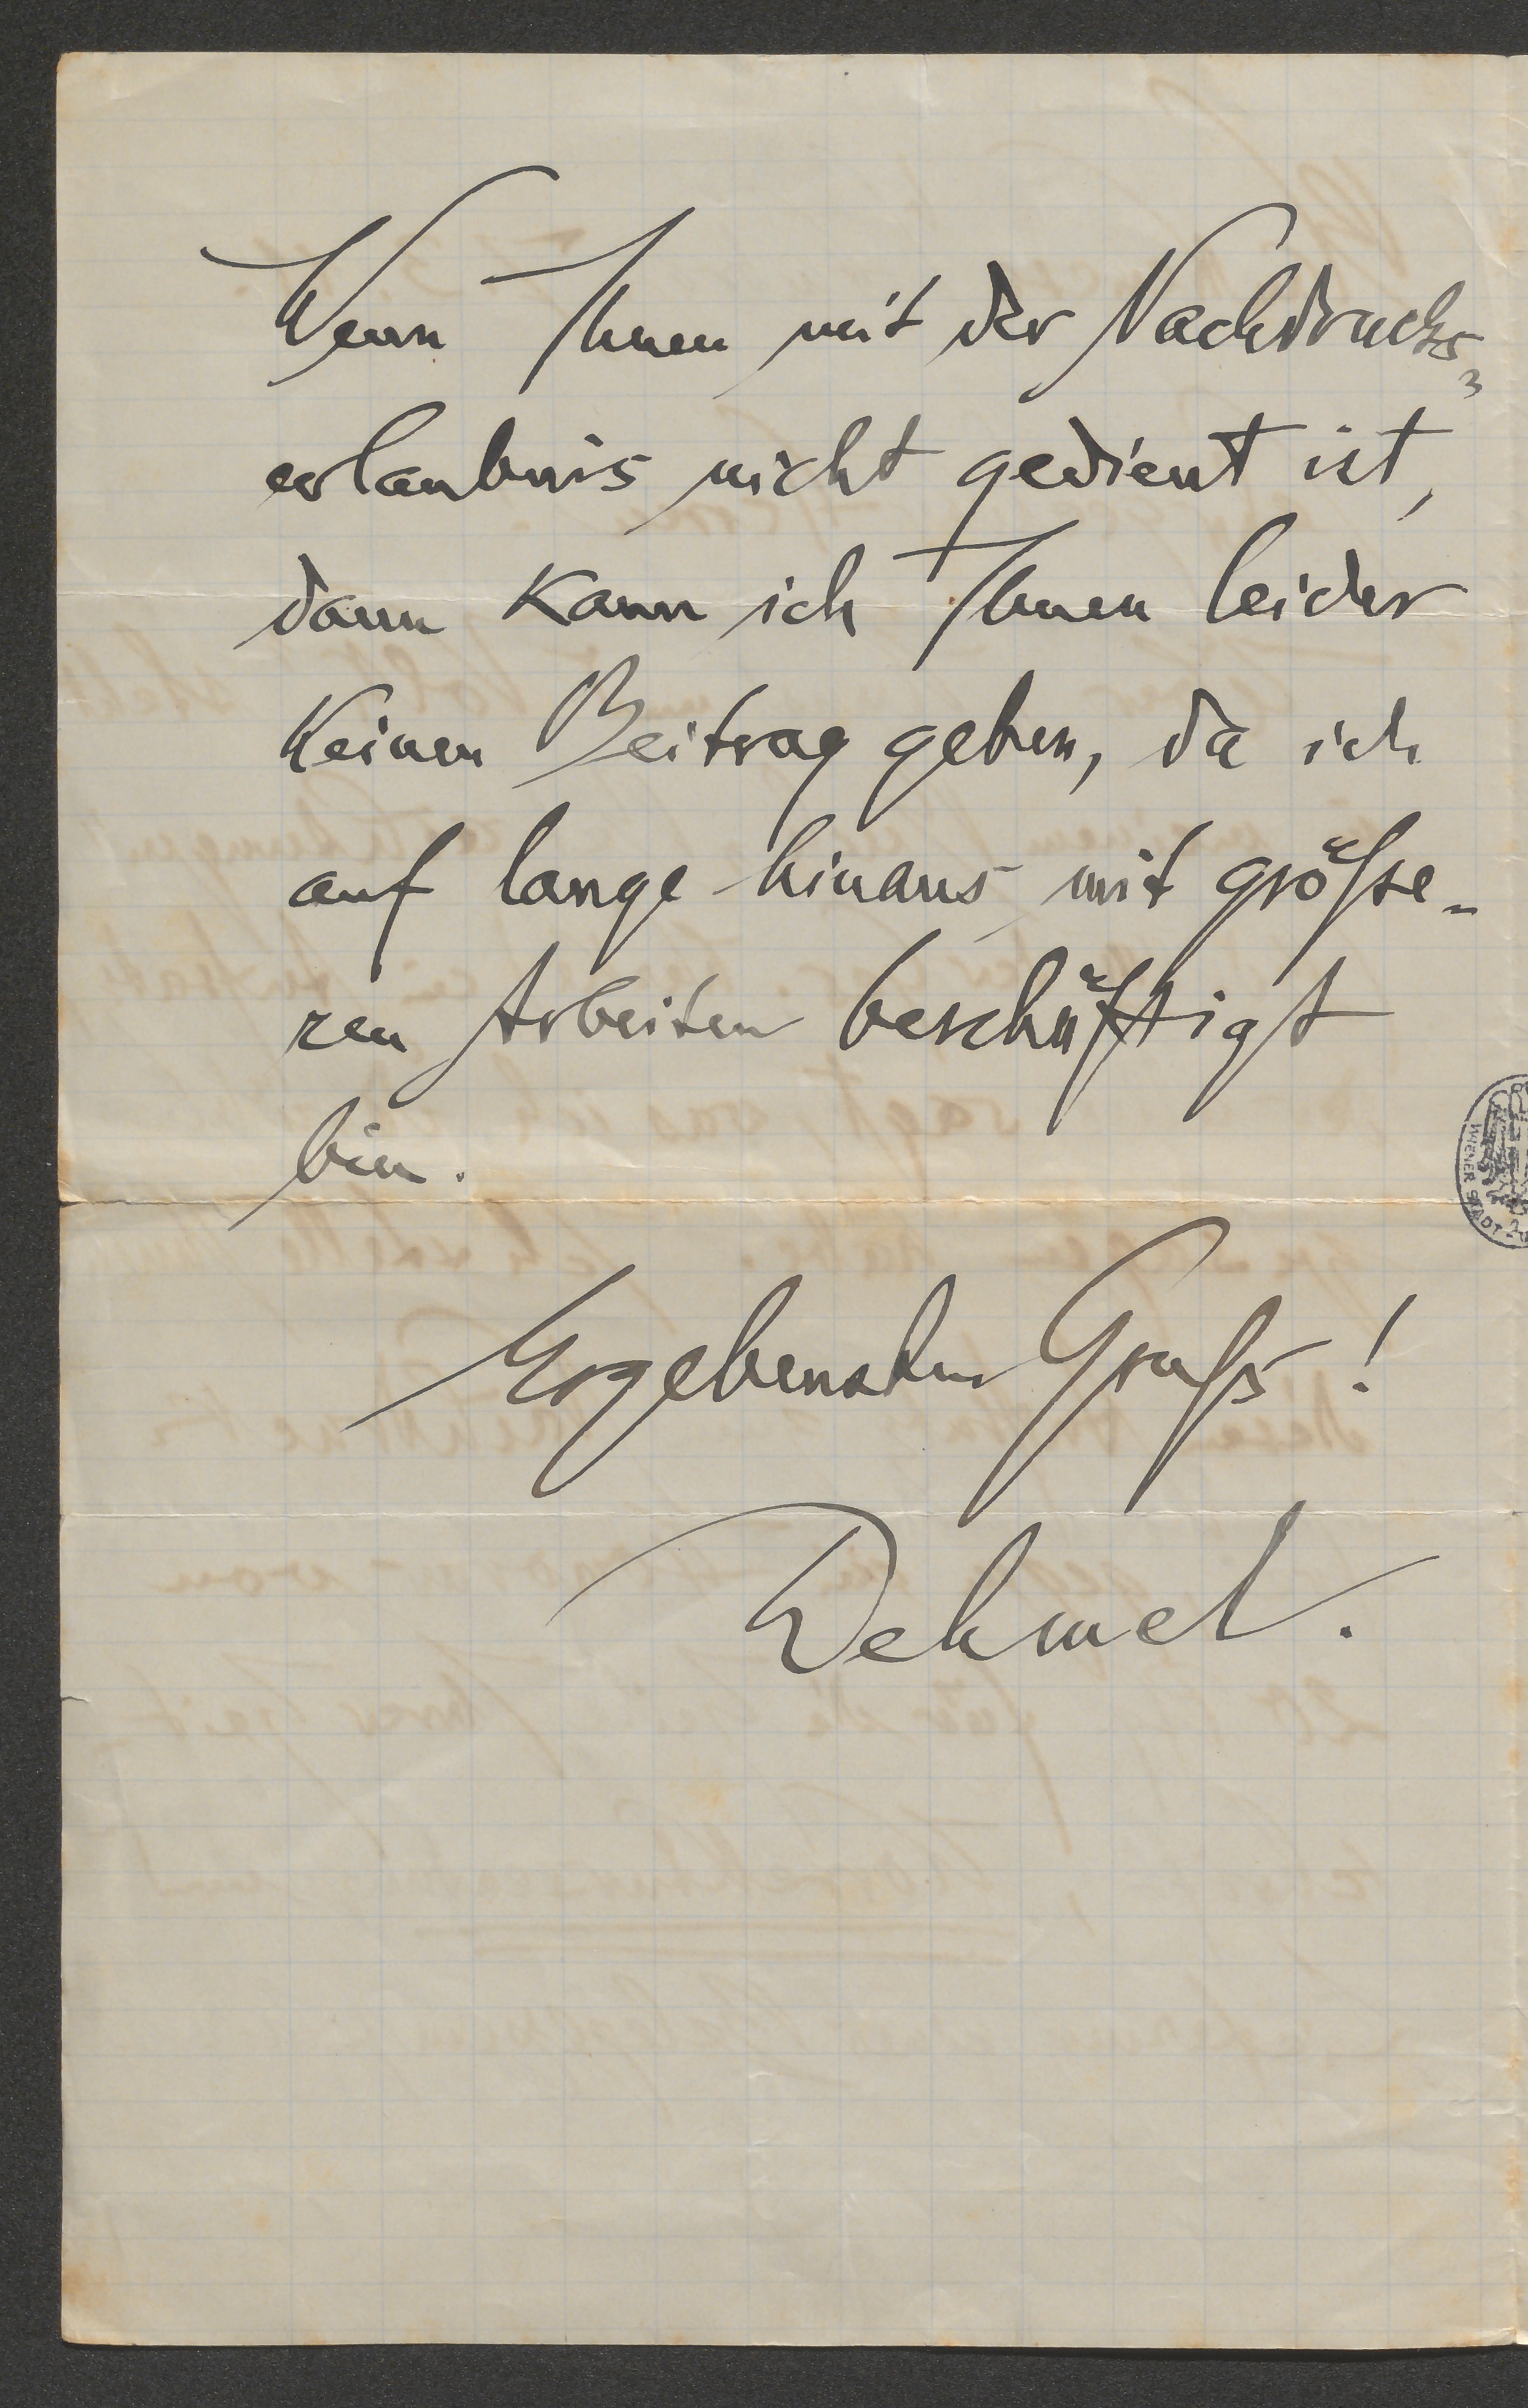 Wenn Ihnen mit der Nachdrucks-
erlaubnis nicht gedient ist,
dann kann ich Ihnen leider
keinen Beitrag geben, da ich
auf lange hinaus mit größe-
ren Arbeiten beschäftigt
bin.
Ergebensten Gruß!
Dehmel.
WIENER STADT